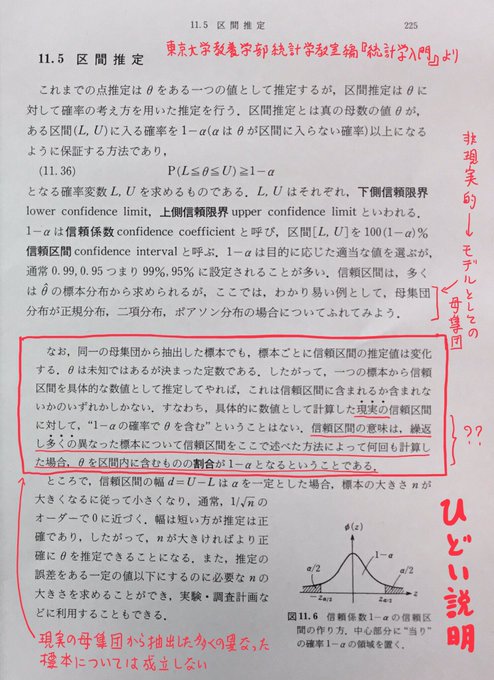 11.5 区間推定
225
東京大学教養学部統計学教室編『統計学入門』より
11.5 区間推定
これまでの点推定は θ をある一つの値として推定するが，区間推定は θ に
対して確率の考え方を用いた推定を行う．区間推定とは真の母数の値 θ が，
ある区間(L, U)に入る確率を 1−α(α は θ が区間に入らない確率)以上になる
ように保証する方法であり，
(11.36) P(L≦θ≦U)≧1−α
となる確率変数 L, U を求めるものである．L, U はそれぞれ，下側信頼限界
lower confidence limit, 上側信頼限界 upper confidence limit といわれる．
1−α は信頼係数 confidence coefficient と呼び，区間[L, U]を 100(1−α)%
信頼区間 confidence interval と呼ぶ．1−α は目的に応じた適当な値を選ぶが，
通常 0.99, 0.95 つまり 99%, 95% に設定されることが多い．信頼区間は，多く
は θ̂ の標本分布から求められるが，ここでは，わかり易い例として，母集団
分布が正規分布，二項分布，ポアソン分布の場合についてふれてみよう．
非現実的→モデルとしての
母集団
なお，同一の母集団から抽出した標本でも，標本ごとに信頼区間の推定値は変化
する．θ は未知ではあるが決まった定数である．したがって，一つの標本から信頼
区間を具体的な数値として推定してやれば，これは信頼区間に含まれるか含まれな
いかのいずれかしかない．すなわち，具体的に数値として計算した現実の信頼区間
に対して，“1−α の確率で θ を含む” ということはない．信頼区間の意味は，繰返
し多くの異なった標本について信頼区間をここで述べた方法によって何回も計算し
た場合，θ を区間内に含むものの割合が 1−α となるということである．
??
ところで，信頼区間の幅 d=U−L は α を一定とした場合，標本の大きさ n が
大きくなるに従って小さくなり，通常，1/√n の
オーダーで 0 に近づく．幅は短い方が推定は正
確であり，したがって，n が大きければより正
確に θ を推定できることになる．また，推定の
誤差をある一定の値以下にするのに必要な n の
大きさを求めることができ，実験・調査計画な
どに利用することもできる．
φ(z)
1−α
α/2
α/2
−zα/2
zα/2
z
図11.6 信頼係数 1−α の信頼区
間の作り方．中心部分に“当り”
の確率 1−α の領域を置く．
ひどい説明
現実の母集団から抽出した多くの異なった
標本については成立しない